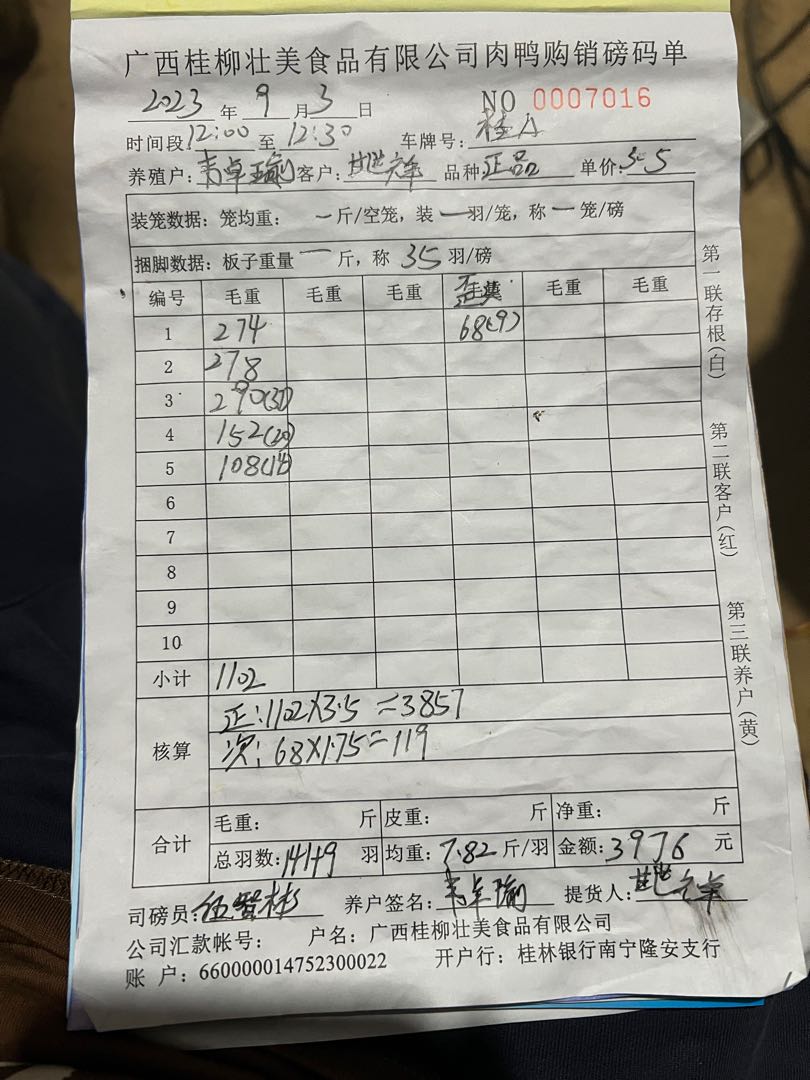 广西桂柳壮美食品有限公司肉鸭购销磅码单
2023年9月3日 NO 0007016
时间段12:00至12:30 车牌号:桂A
养殖户:韦卓瑜 客户: 品种正品 单价:3.5
装笼数据:笼均重: 一斤/空笼,装一羽/笼,称一笼/磅
捆脚数据:板子重量一斤,称35羽/磅
编号 毛重 毛重 毛重 毛重 毛重
1 274 68(9)
2 278
3 290
4 152(20)
5 108
6
7
8
9
10
小计 1102
核算
正:1102X3.5=3857
次:68X1.75=119
合计
毛重: 斤 皮重: 斤 净重: 斤
总羽数:141+9羽 均重:7.82斤/羽 金额:3976元
司磅员: 养户签名:韦卓瑜 提货人:
公司汇款帐号: 户名:广西桂柳壮美食品有限公司
账 户:660000014752300022 开户行:桂林银行南宁隆安支行
第一联存根(白)
第二联客户(红)
第三联养户(黄)